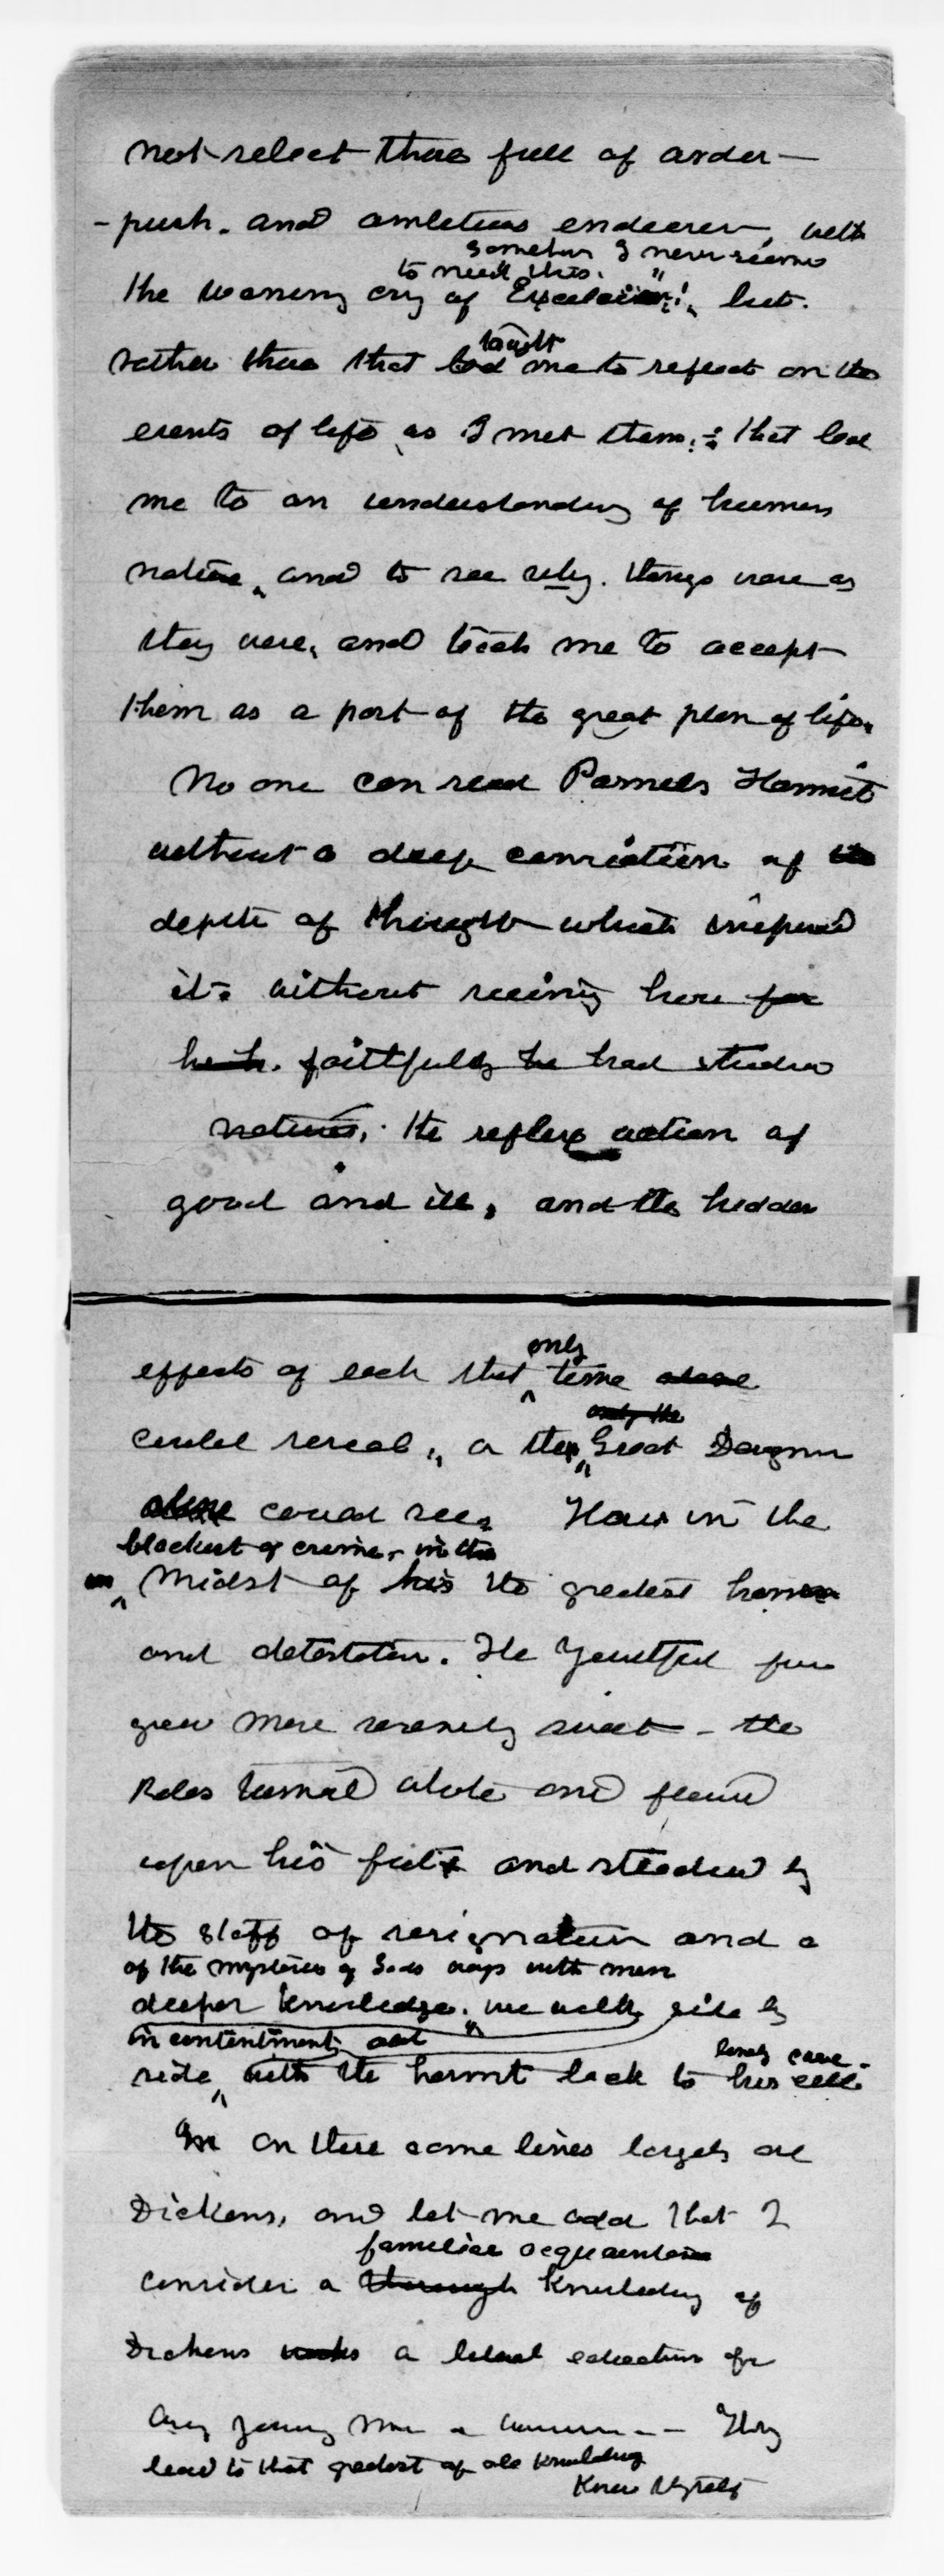 not select those full of ardor —
- push. and ambitious endeavor, with
somehow I never seemed
to need this.
the warning cry of "Excelsior!" but.
taught
rather those that led me to reflect on the
events of life as I met them; that lead
me to an understanding of human
nature, and to see why. things were as
they were, and teach me to accept
them as a part of the great plan of life.
No one can read Parnels Hermit
without a deep conviction of the
depth of thought which inspired
it. without seeing how far
faithfully he had studied
natures, the reflex action of
good and ill, and the hidden
only
effects of each that time alone
only the
could reveal, or the Great Designer
alone could see. How in the
blackest of crime, in the
in midst of his the greatest horror
and detestation. The Youthful face
grew more serenely sweet - the
Robes turned white and flowed
upon his feet and steadied by
the staff of resignation and a
of the mysteries of Gods ways with men
deeper knowledge. we walk side by
in contentment
lonely cave.
side with the hermit back to his cell.
In on these same lines largely are
Dickens, and let me add that I
familiar acquaintance
consider a thorough knowledge of
Dickens works a liberal education for
any young man or woman — They
lead to that greatest of all knowledge
Know thyself